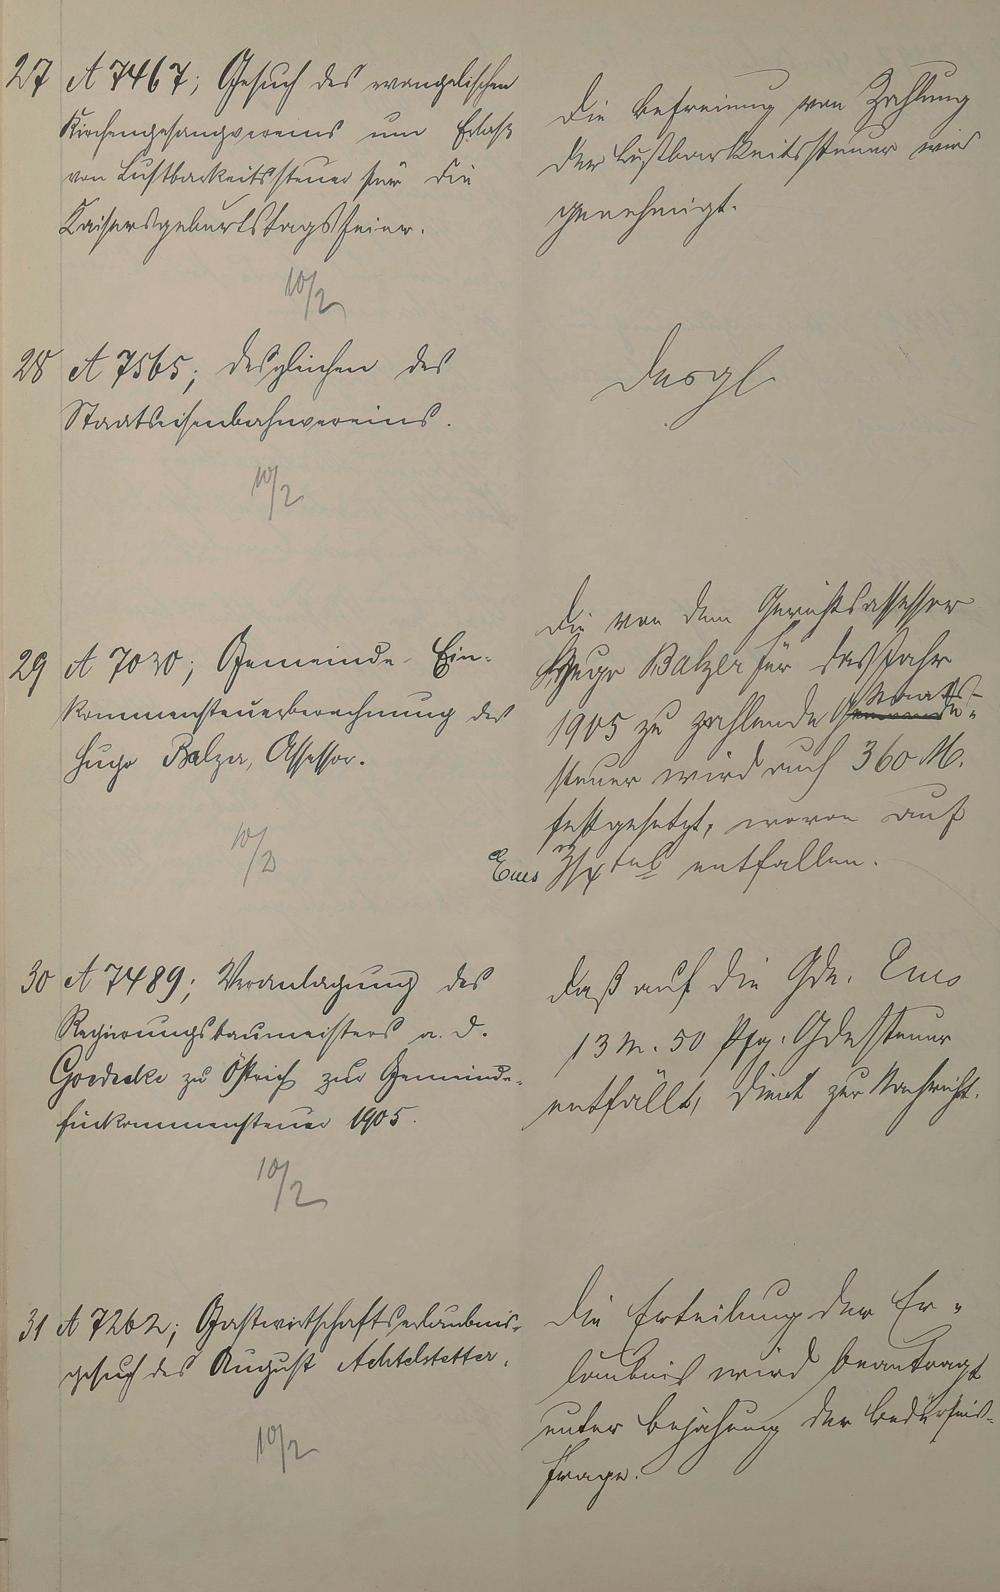 27 A 7467; Gesuch des evangelischen
Kirchengesangvereins um Erlaß
von Lustbarkeitssteuer für die
Kaisersgeburtstagsfeier.
10/2
Die Befreiung von Zahlung
der Lustbarkeitssteuer wird
genehmigt.
28 A 7565; desgleichen des
Staatseisenbahnvereins.
10/2
Desgl.
29 A 7030; Gemeinde-Ein-
kommensteuerberechnung des
Hugo Balzer, Assessor.
10/2
Die von dem Gerichtsassessor
Hugo Balzer für das Jahr
1905 zu zahlende Staats-
steuer wird auf 360 M.
festgesetzt, wovon auf
Ems entfallen.
30 A 7489; Veranlagung des
Regierungsbaumeisters a. D.
Goedecke zu Östrich zur Gemeinde-
einkommensteuer 1905.
10/2
Daß auf die Gde. Ems
13 M. 50 Pfg. Gdesteuer
entfällt, dient zur Nachricht.
31 A 7262; Gastwirtschaftserlaubnis-
gesuch des August Achtelstetter.
10/2
Die Erteilung der Er-
laubnis wird beantragt
unter Bejahung der Bedürfnis-
frage.